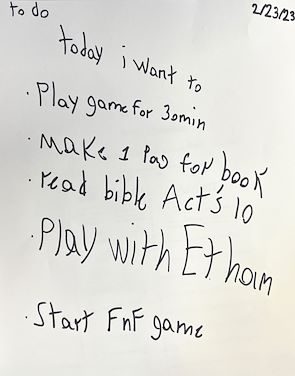 to do
2/23/23
today i want to
· Play game for 30min
· make 1 pag for book
· read bible Act's 10
· Play with Ethan
· Start FnF game